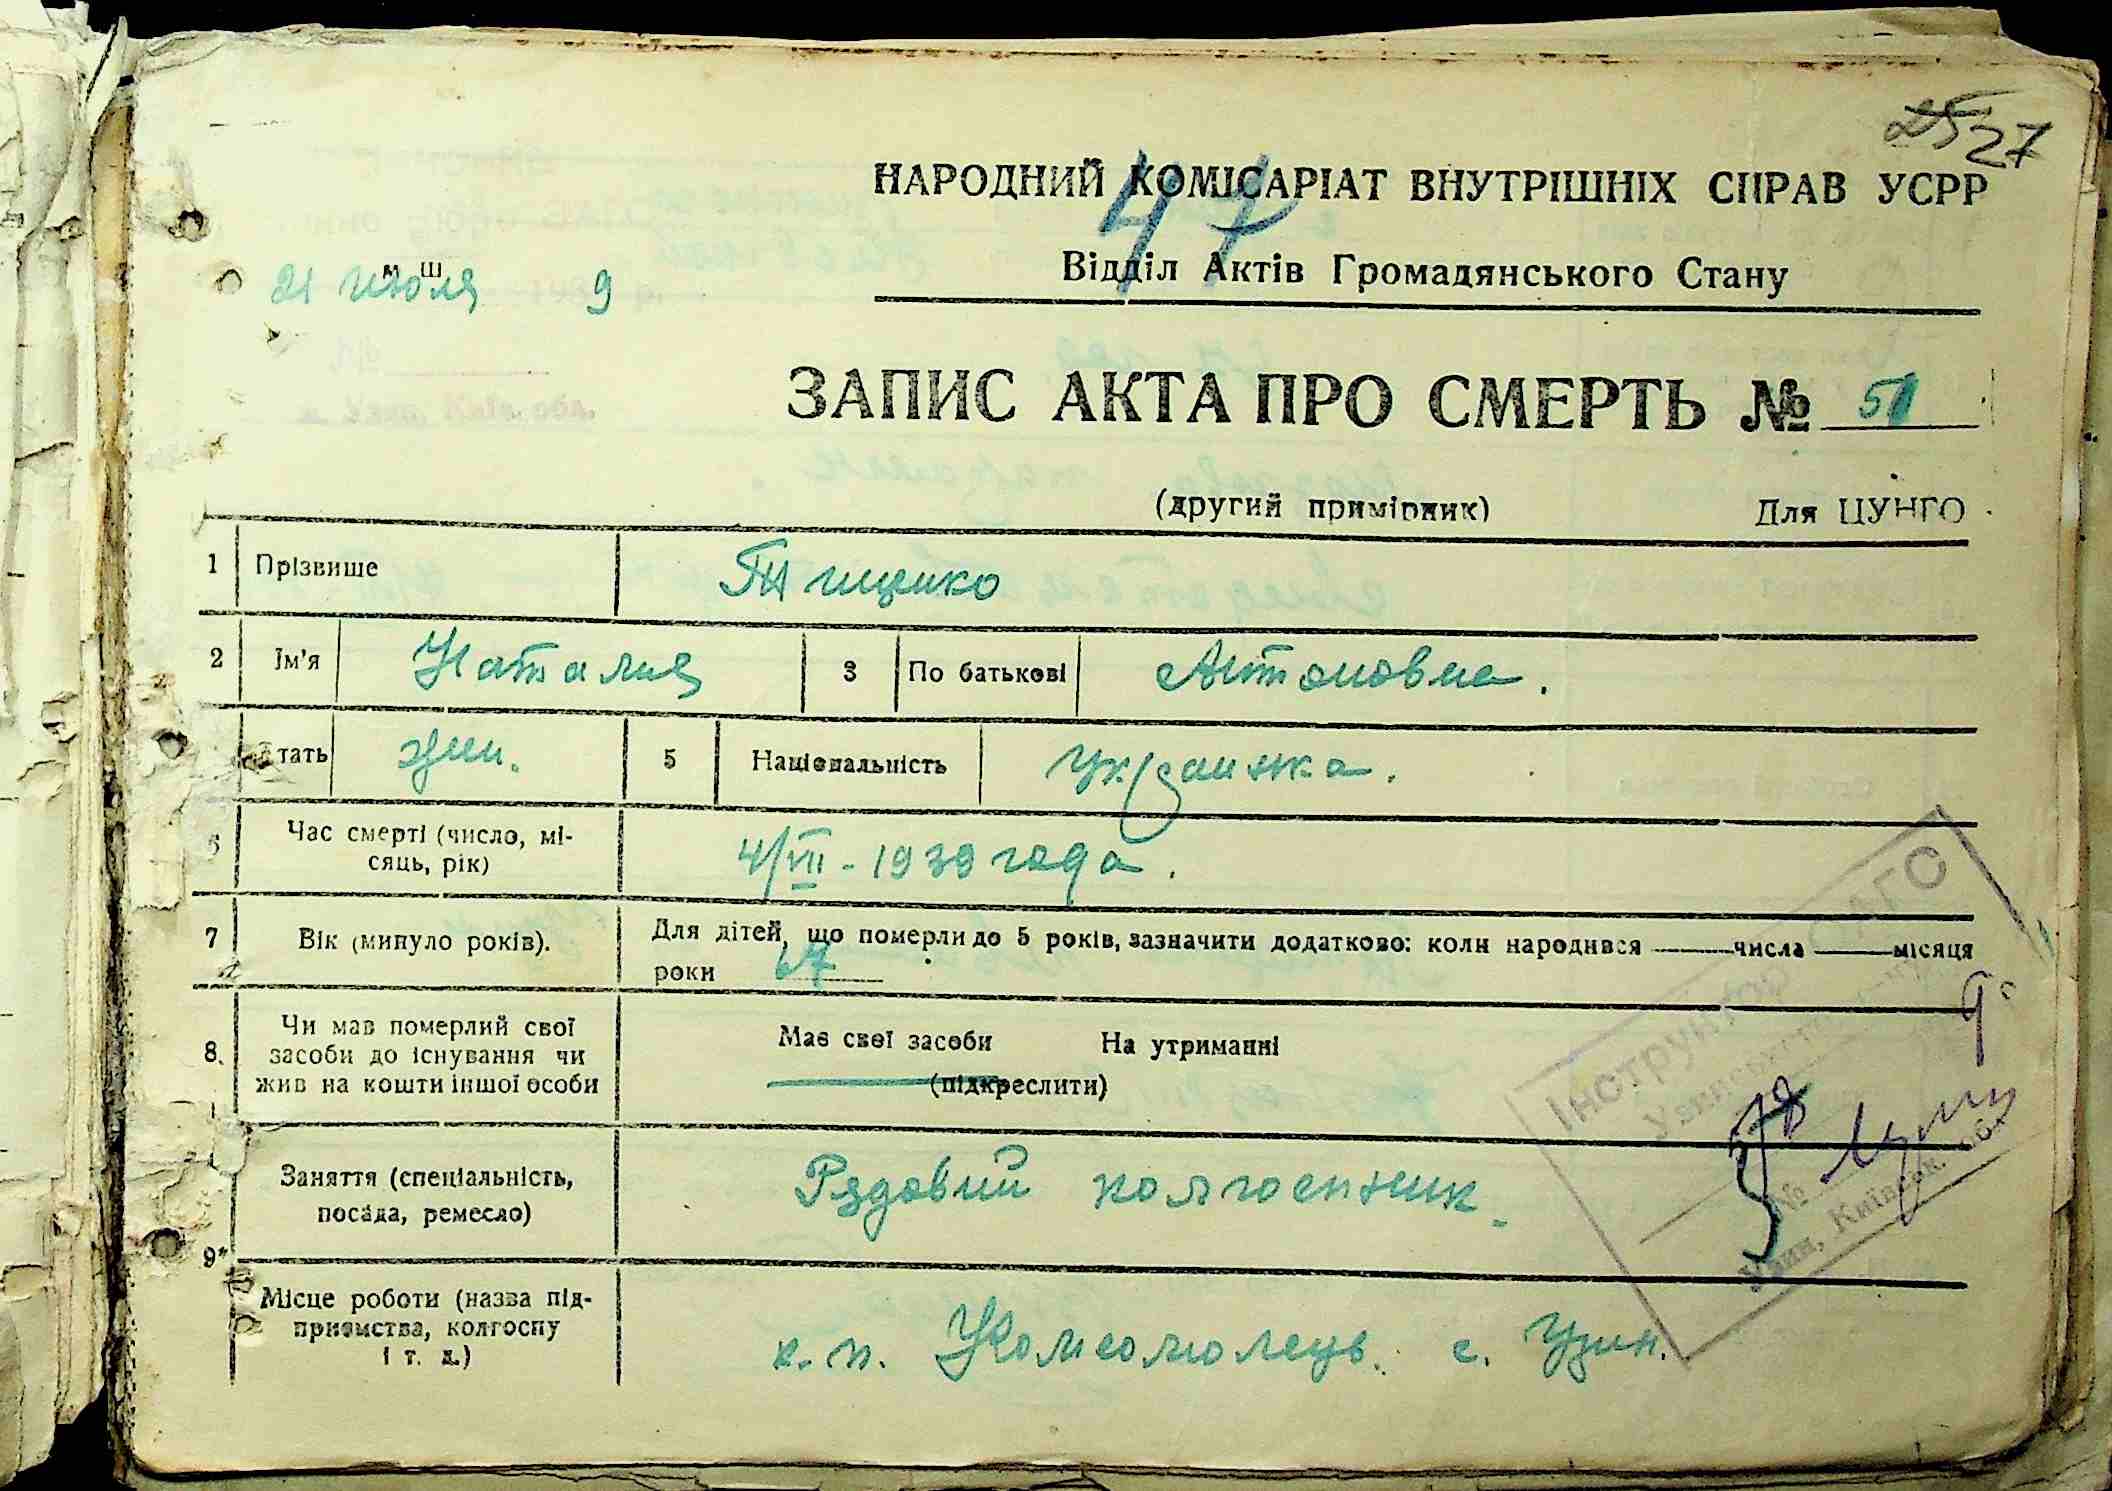 25 27
НАРОДНИЙ КОМІСАРІАТ ВНУТРІШНІХ СПРАВ УСРР
47
Відділ Актів Громадянського Стану
21 июля 9
ЗАПИС АКТА ПРО СМЕРТЬ № 51
(другий примірник) Для ЦУНГО
1 Прізвище Тищенко
2 Ім'я Наталия 3 По батькові Антоновна.
Стать жен. 5 Національність Украинка.
6 Час смерті (число, мі-
сяць, рік) 4/VII - 1939 года.
7 Вік (минуло років). Для дітей, що померли до 5 років, зазначити додатково: коли народився числа місяця
роки 67
8. Чи мав померлий свої
засоби до існування чи
жив на кошти іншої особи
Має свої засоби На утриманні
(підкреслити)
9. Заняття (спеціальність,
посада, ремесло) Рядовий колгоспник.
Місце роботи (назва під-
приємства, колгоспу
і т. д.) к. п. Комсомолець. с. Узин.
Інструктор ЗАГС
№
Узин, Київськ. обл.